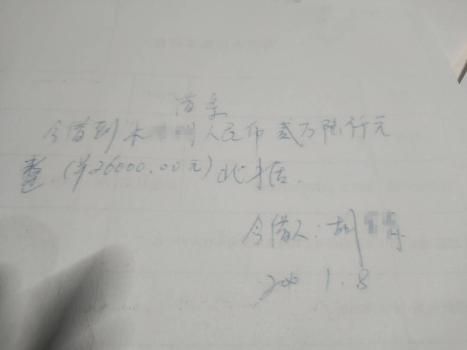 借条
今借到木 人民币贰万陆仟元
整.(¥26000.00元)此据.
今借人:胡
1.8